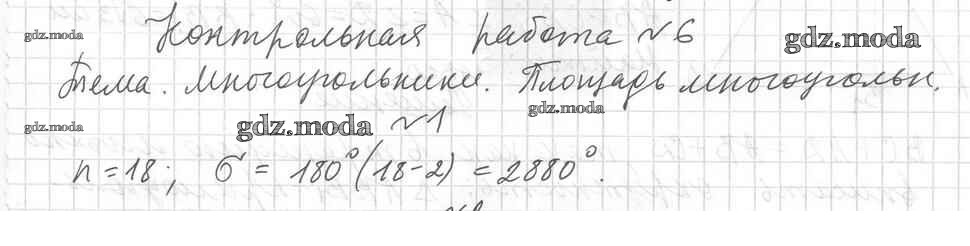 gdz.moda Контрольная работа №6 gdz.moda
Тема. Многоугольники. Площадь многоугольн.
gdz.moda gdz.moda №1 gdz.moda
n = 18; σ = 180°(18-2) = 2880°.